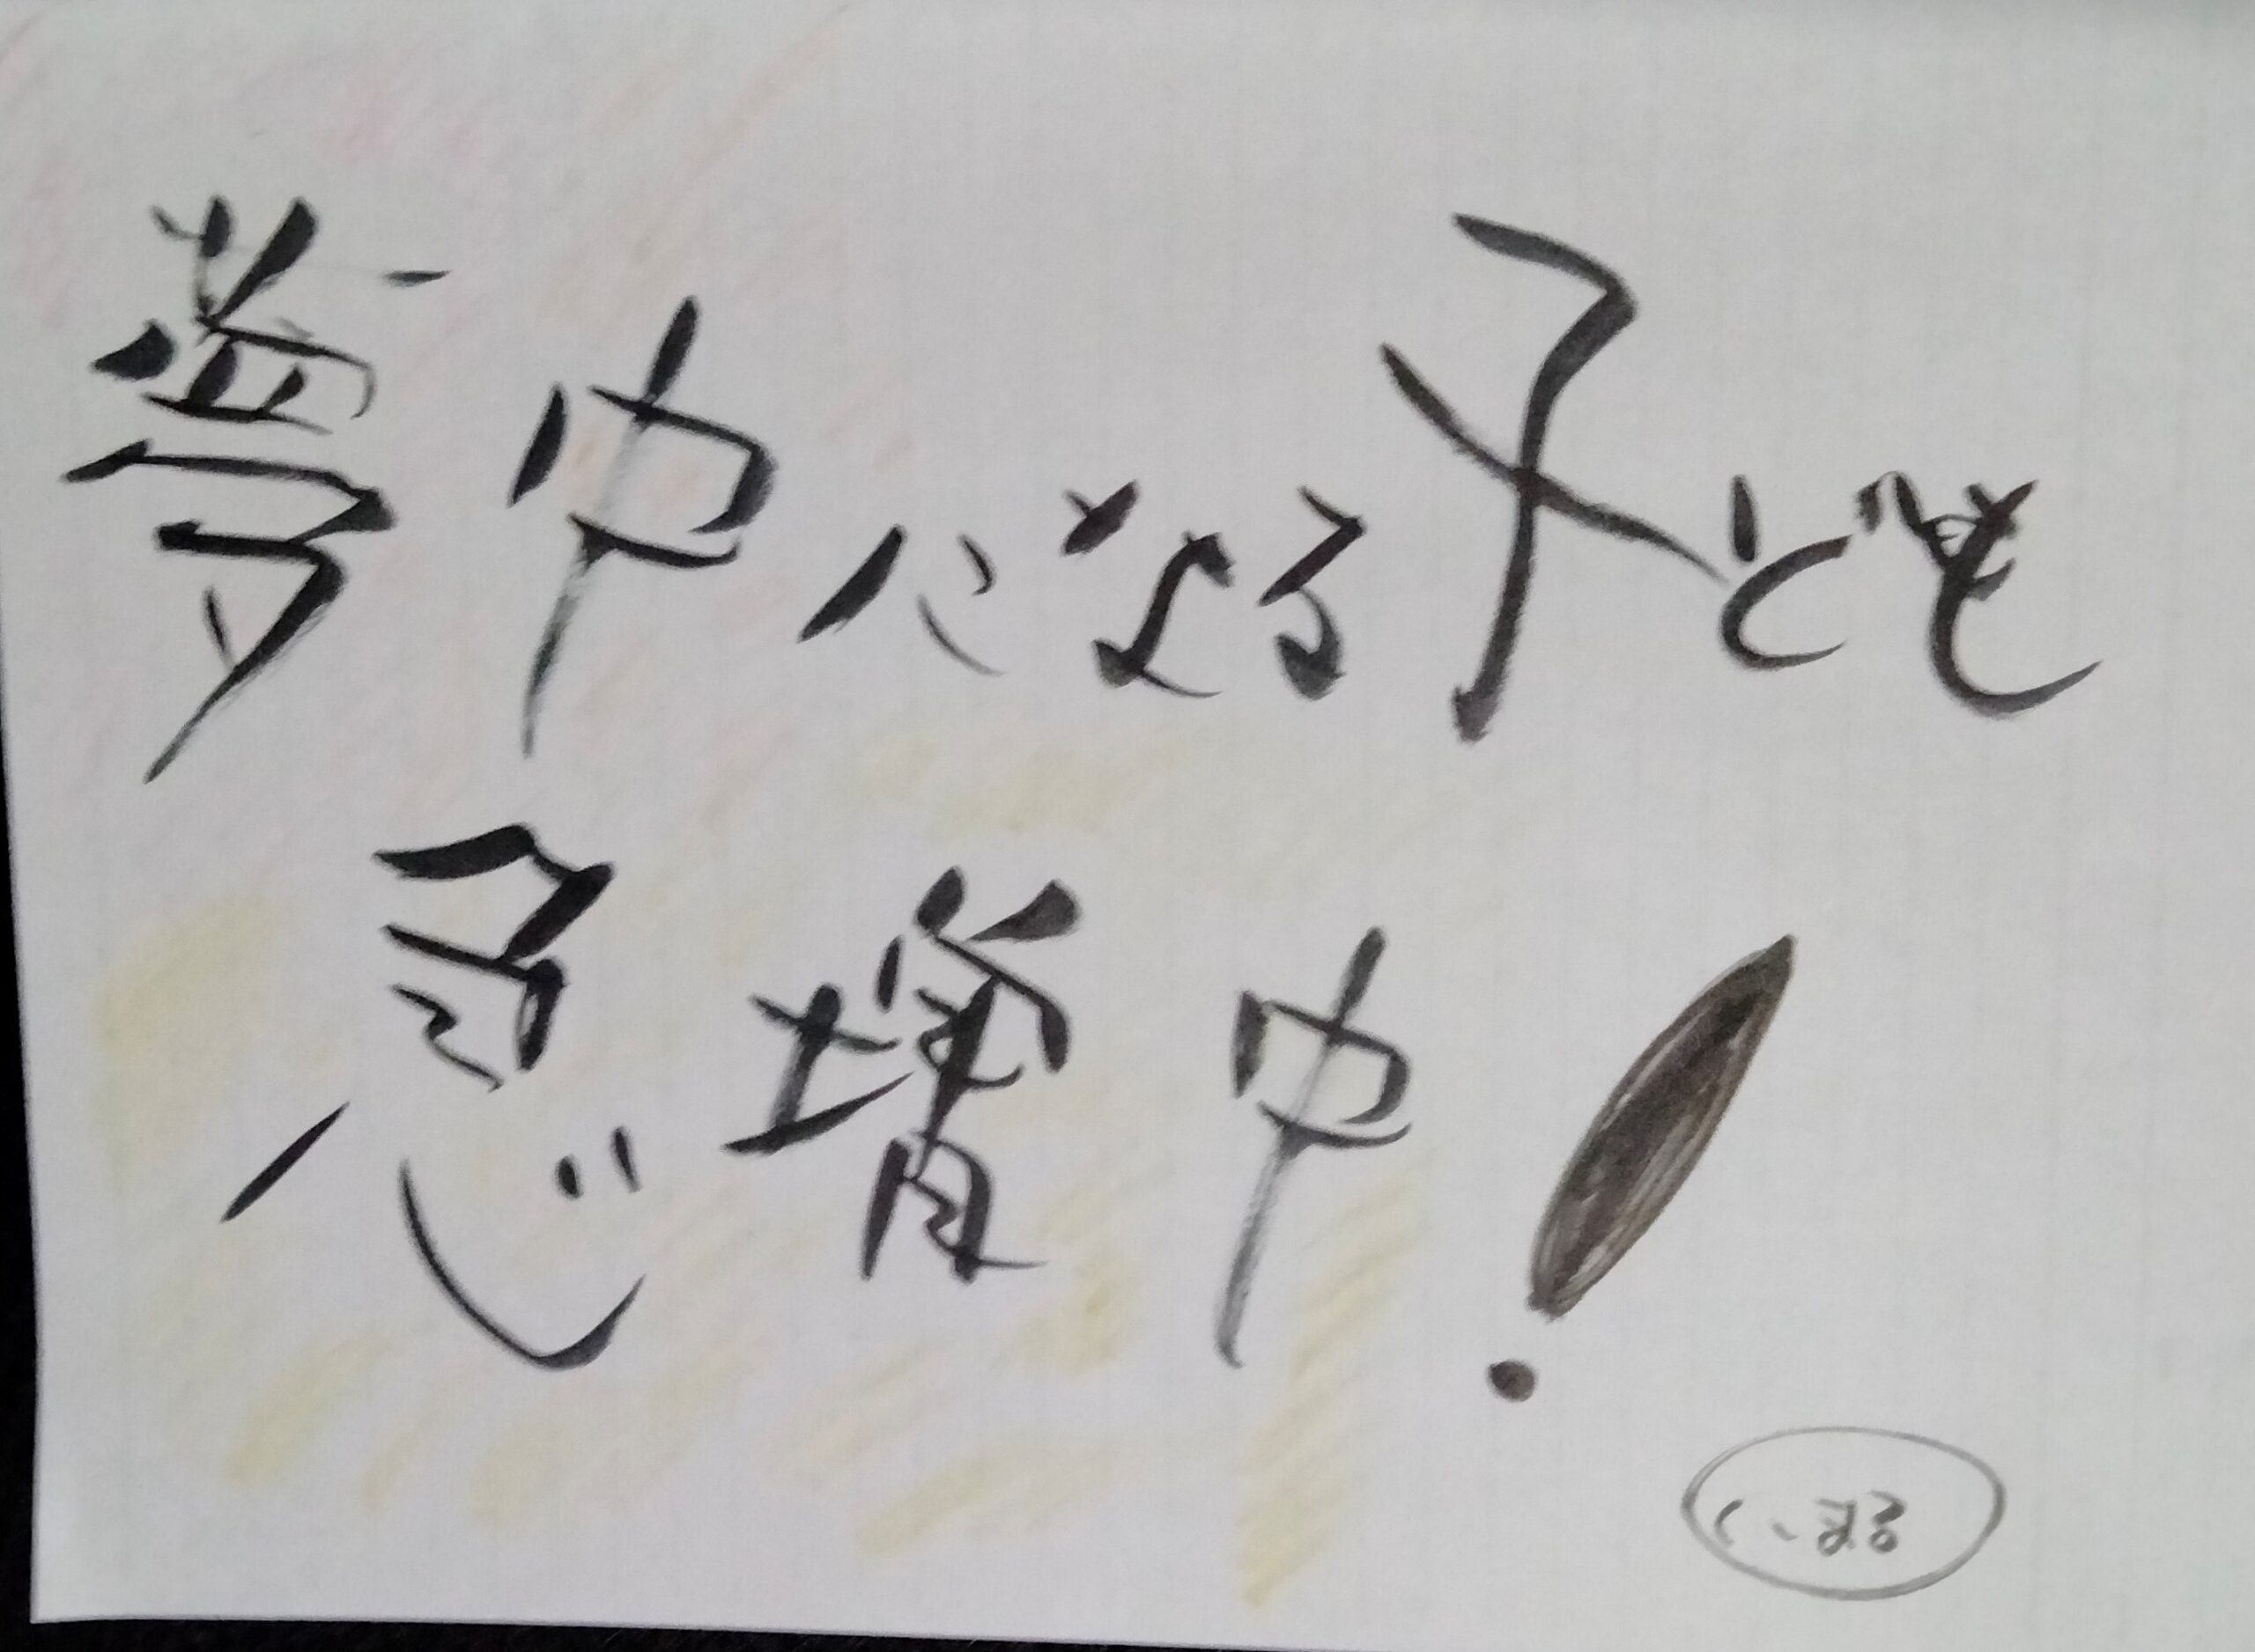 夢中になる子ども
急増中!
いまる